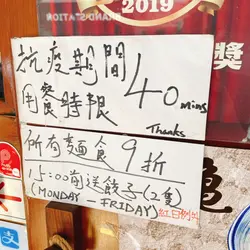 2019
獎
抗疫期間
用餐時限
40 mins
Thanks
所有麵食 9折
15:00前送餃子(2隻)
(MONDAY - FRIDAY) 紅日例外